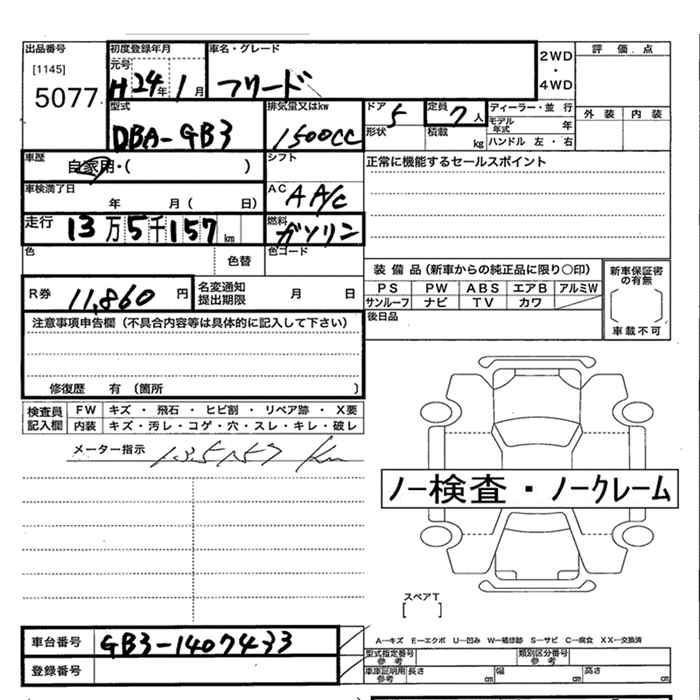 出品番号 初度登録年月 車名・グレード 2WD・4WD 評価点
[1145] 元号
5077 H24年 1月 フリード
型式 排気量又はkw ドア 定員 ディーラー・並行 外装 内装
DBA-GB3 1500cc 5 7人 モデル年式 年
形状 積載 kg ハンドル 左・右
車歴 シフト 正常に機能するセールスポイント
自家用・( )
車検満了日 AC
年 月( 日) AA/C
走行 13万5千157km 燃料 ガソリン
色 色替 色コード
装備品(新車からの純正品に限り○印) 新車保証書の有無
R券 11,860円 名変通知提出期限 月 日
PS PW ABS エアB アルミW
サンルーフ ナビ TV カワ
車載不可
注意事項申告欄(不具合内容等は具体的に記入して下さい) 後日品
修復歴 有 (箇所 )
検査員記入欄 FW キズ・飛石・ヒビ割・リペア跡・X要
内装 キズ・汚レ・コゲ・穴・スレ・キレ・破レ
メーター指示 135157 Km
ノー検査・ノークレーム
スペアT
[ ]
車台番号 GB3-1407433
A…キズ E…エクボ U…凹み W…補修跡 S…サビ C…腐食 XX…交換済
型式指定番号 参考 類別区分番号 参考
登録番号 車庫証明用参考 長さ cm 幅 cm 高さ cm